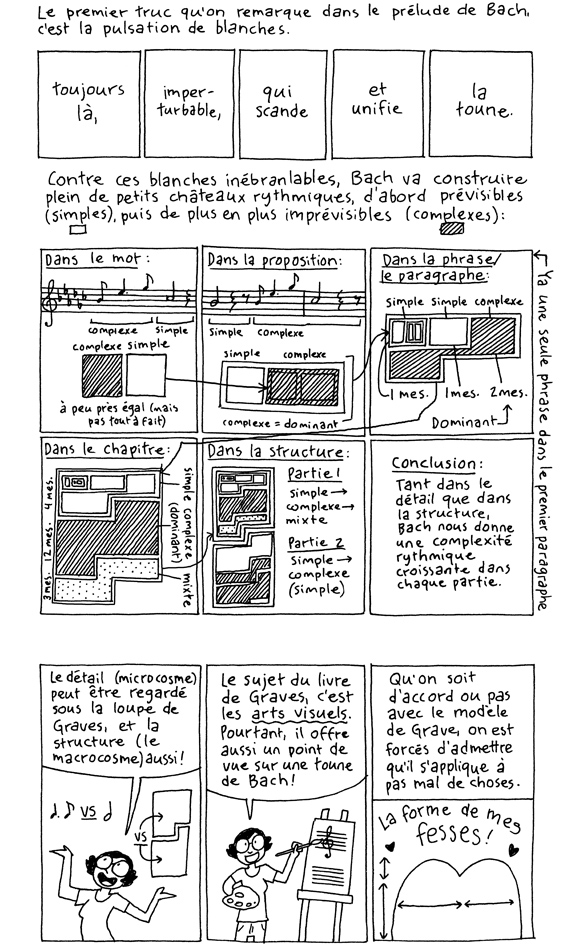 Le premier truc qu'on remarque dans le prélude de Bach,
c'est la pulsation de blanches.
toujours
là,
imper-
turbable,
qui
scande
et
unifie
la
toune.
Contre ces blanches inébranlables, Bach va construire
plein de petits châteaux rythmiques, d'abord prévisibles
(simples), puis de plus en plus imprévisibles (complexes):
Dans le mot:
complexe simple
complexe simple
à peu près égal (mais
pas tout à fait)
Dans la proposition:
simple complexe
simple complexe
complexe = dominant
Dans la phrase/
le paragraphe:
simple simple complexe
1 mes. 1 mes. 2 mes.
Dominant
Ya une seule phrase dans le premier paragraphe
Dans le chapitre:
4 mes.
12 mes.
3 mes.
simple
complexe
(dominant)
mixte
Dans la structure:
Partie 1
simple →
complexe →
mixte
Partie 2
Simple →
complexe
(simple)
Conclusion:
Tant dans le
détail que dans
la structure,
Bach nous donne
une complexité
rythmique
croissante dans
chaque partie.
Le détail (microcosme)
peut être regardé
sous la loupe de
Graves, et la
structure (le
macrocosme) aussi!
vs
vs
Le sujet du livre
de Graves, c'est
les arts visuels.
Pourtant, il offre
aussi un point de
vue sur une toune
de Bach!
Qu'on soit
d'accord ou pas
avec le modèle
de Grave, on est
forcés d'admettre
qu'il s'applique à
pas mal de choses.
La forme de mes
fesses!